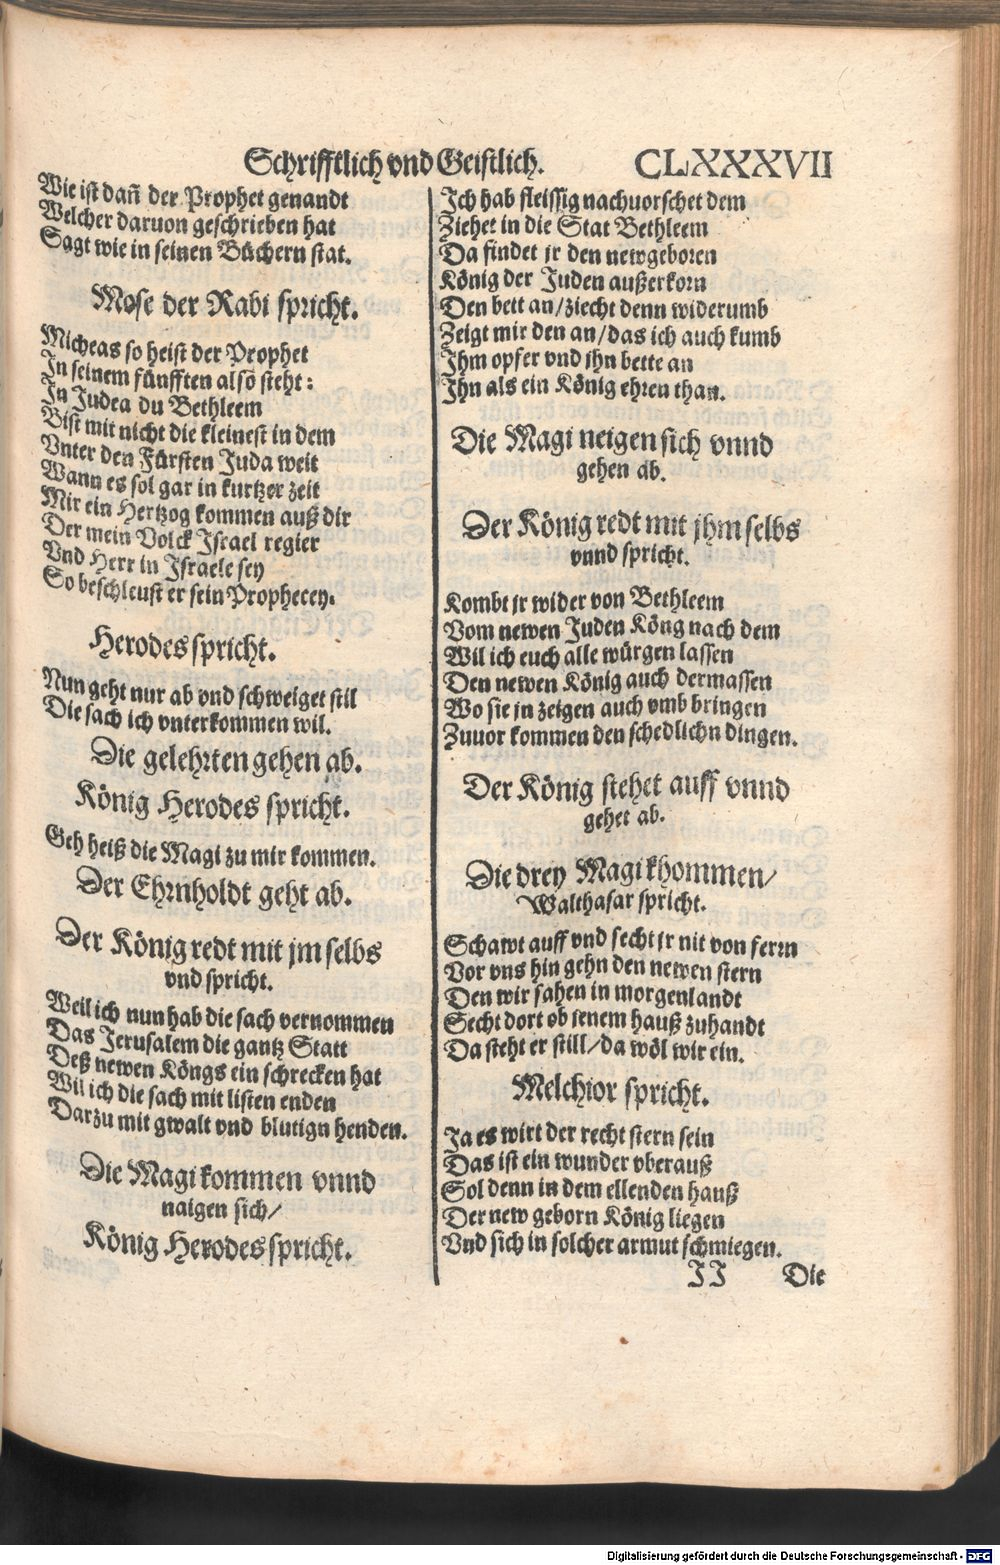 Schrifftlich vnd Geistlich. CLXXXVII
Wie ist dañ der Prophet genandt
Welcher daruon geschrieben hat
Sagt wie in seinen Büchern stat.
Mose der Rabi spricht.
Micheas so heist der Prophet
In seinem fünfften also steht:
In Judea du Bethleem
Bist mit nicht die kleinest in dem
Vnter den Fürsten Juda weit
Wann es sol gar in kurtzer zeit
Mir ein Hertzog kommen auß dir
Der mein Volck Israel regier
Vnd Herr in Israele sey
So beschleust er sein Prophecey.
Herodes spricht.
Nun geht nur ab vnd schweiget stil
Die sach ich vnterkommen wil.
Die gelehrten gehen ab.
König Herodes spricht.
Geh heiß die Magi zu mir kommen.
Der Ehrnholdt geht ab.
Der König redt mit jm selbs
vnd spricht.
Weil ich nun hab die sach vernommen
Das Jerusalem die gantz Statt
Deß newen Köngs ein schrecken hat
Wil ich die sach mit listen enden
Darzu mit gwalt vnd blutign henden.
Die Magi kommen vnnd
naigen sich/
König Herodes spricht.
Ich hab fleissig nachuorschet dem
Ziehet in die Stat Bethleem
Da findet jr den newgeboren
König der Juden außerkorn
Den bett an/ziecht denn widerumb
Zeigt mir den an/das ich auch kumb
Ihm opfer vnd jhn bette an
Ihn als ein König ehren than.
Die Magi neigen sich vnnd
gehen ab.
Der König redt mit jhm selbs
vnnd spricht.
Kombt jr wider von Bethleem
Vom newen Juden Köng nach dem
Wil ich euch alle würgen lassen
Den newen König auch dermassen
Wo sie jn zeigen auch vmb bringen
Zuuor kommen den schedlichn dingen.
Der König stehet auff vnnd
gehet ab.
Die drey Magi khommen/
Walthasar spricht.
Schawt auff vnd secht jr nit von ferrn
Vor vns hin gehn den newen stern
Den wir sahen in morgenlandt
Secht dort ob jenem hauß zuhandt
Da steht er still/da wöl wir ein.
Melchior spricht.
Ja es wirt der recht stern sein
Das ist ein wunder vberauß
Sol denn in dem ellenden hauß
Der new geborn König liegen
Vnd sich in solcher armut schmiegen.
II Die
Digitalisierung gefördert durch die Deutsche Forschungsgemeinschaft - DFG